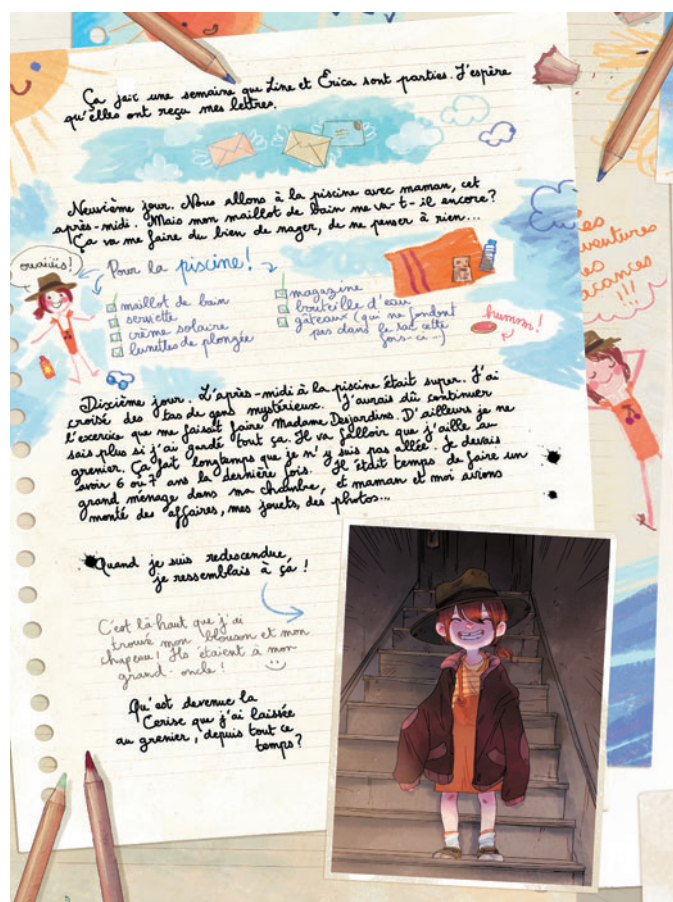 Ça fait une semaine que Line et Erica sont parties. J'espère
qu'elles ont reçu mes lettres.
Neuvième jour. Nous allons à la piscine avec maman, cet
après-midi. Mais mon maillot de bain me va-t-il encore?
Ça va me faire du bien de nager, de ne penser à rien...
ouaiiiis!
Pour la piscine!
maillot de bain
serviette
crème solaire
lunettes de plongée
magazine
bouteille d'eau
gâteaux (qui ne fondent
pas dans le sac cette
fois-ci...)
hummm!
Les
aventures
des
vacances
!!!
Dixième jour. L'après-midi à la piscine était super. J'ai
croisé des tas de gens mystérieux. J'aurais dû continuer
l'exercice que me faisait faire Madame Desjardins. D'ailleurs je ne
sais plus si j'ai gardé tout ça. Il va falloir que j'aille au
grenier. Ça fait longtemps que je n'y suis pas allée. Je devais
avoir 6 ou 7 ans la dernière fois. Il était temps de faire un
grand ménage dans ma chambre, et maman et moi avions
monté des affaires, mes jouets, des photos...
Quand je suis redescendue,
je ressemblais à ça!
C'est là-haut que j'ai
trouvé mon blouson et mon
chapeau! Ils étaient à mon
grand-oncle!
Qu'est devenue la
Cerise que j'ai laissée
au grenier, depuis tout ce
temps?